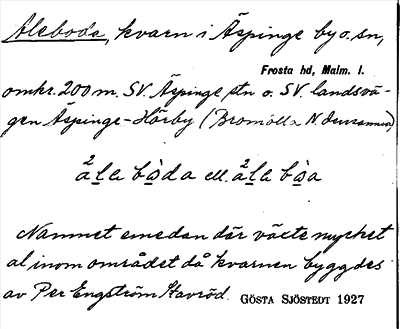 Aleboda, kvarn i Äspinge by o. sn,
Frosta hd, Malm. l.
omkr. 200 m. SV. Äspinge stn o. SV. landsvä-
gen Äspinge-Hörby (Bromölla N.
a²le bòda el. a²le bòa
Namnet emedan där växte mycket
al inom området då kvarnen byggdes
av Per Engström Havröd. GÖSTA SJÖSTEDT 1927